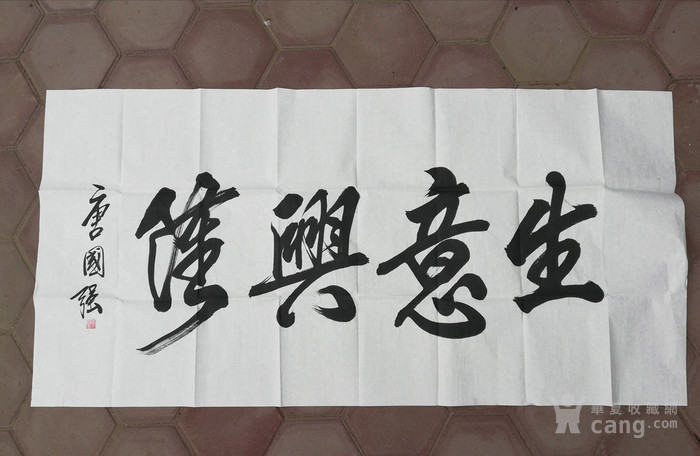 生意興隆
唐國强
華夏收藏網
cang.com